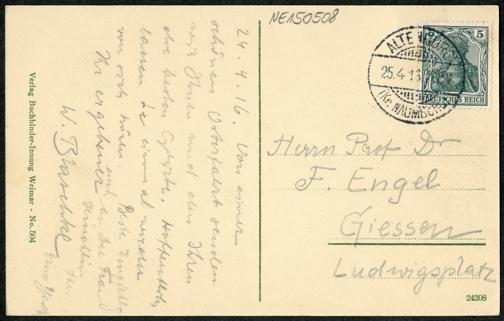 NE150508
24.4.16. Von einer
schönen Osterfahrt senden
wir Ihnen und den Ihren
die besten Hoffentlich
lassen Sie einmal wieder
von sich hören. Beste Empfehl
und an die Frau
Ihr ergebener Gemahlin
W. Blaschke
Verlag Buchbinder-Innung Weimar - No. 504
5
DEUTSCHES REICH
25.4.16
(Kr. NAUMBURG
Herrn Prof Dr
F. Engel
Giessen
Ludwigsplatz
24208